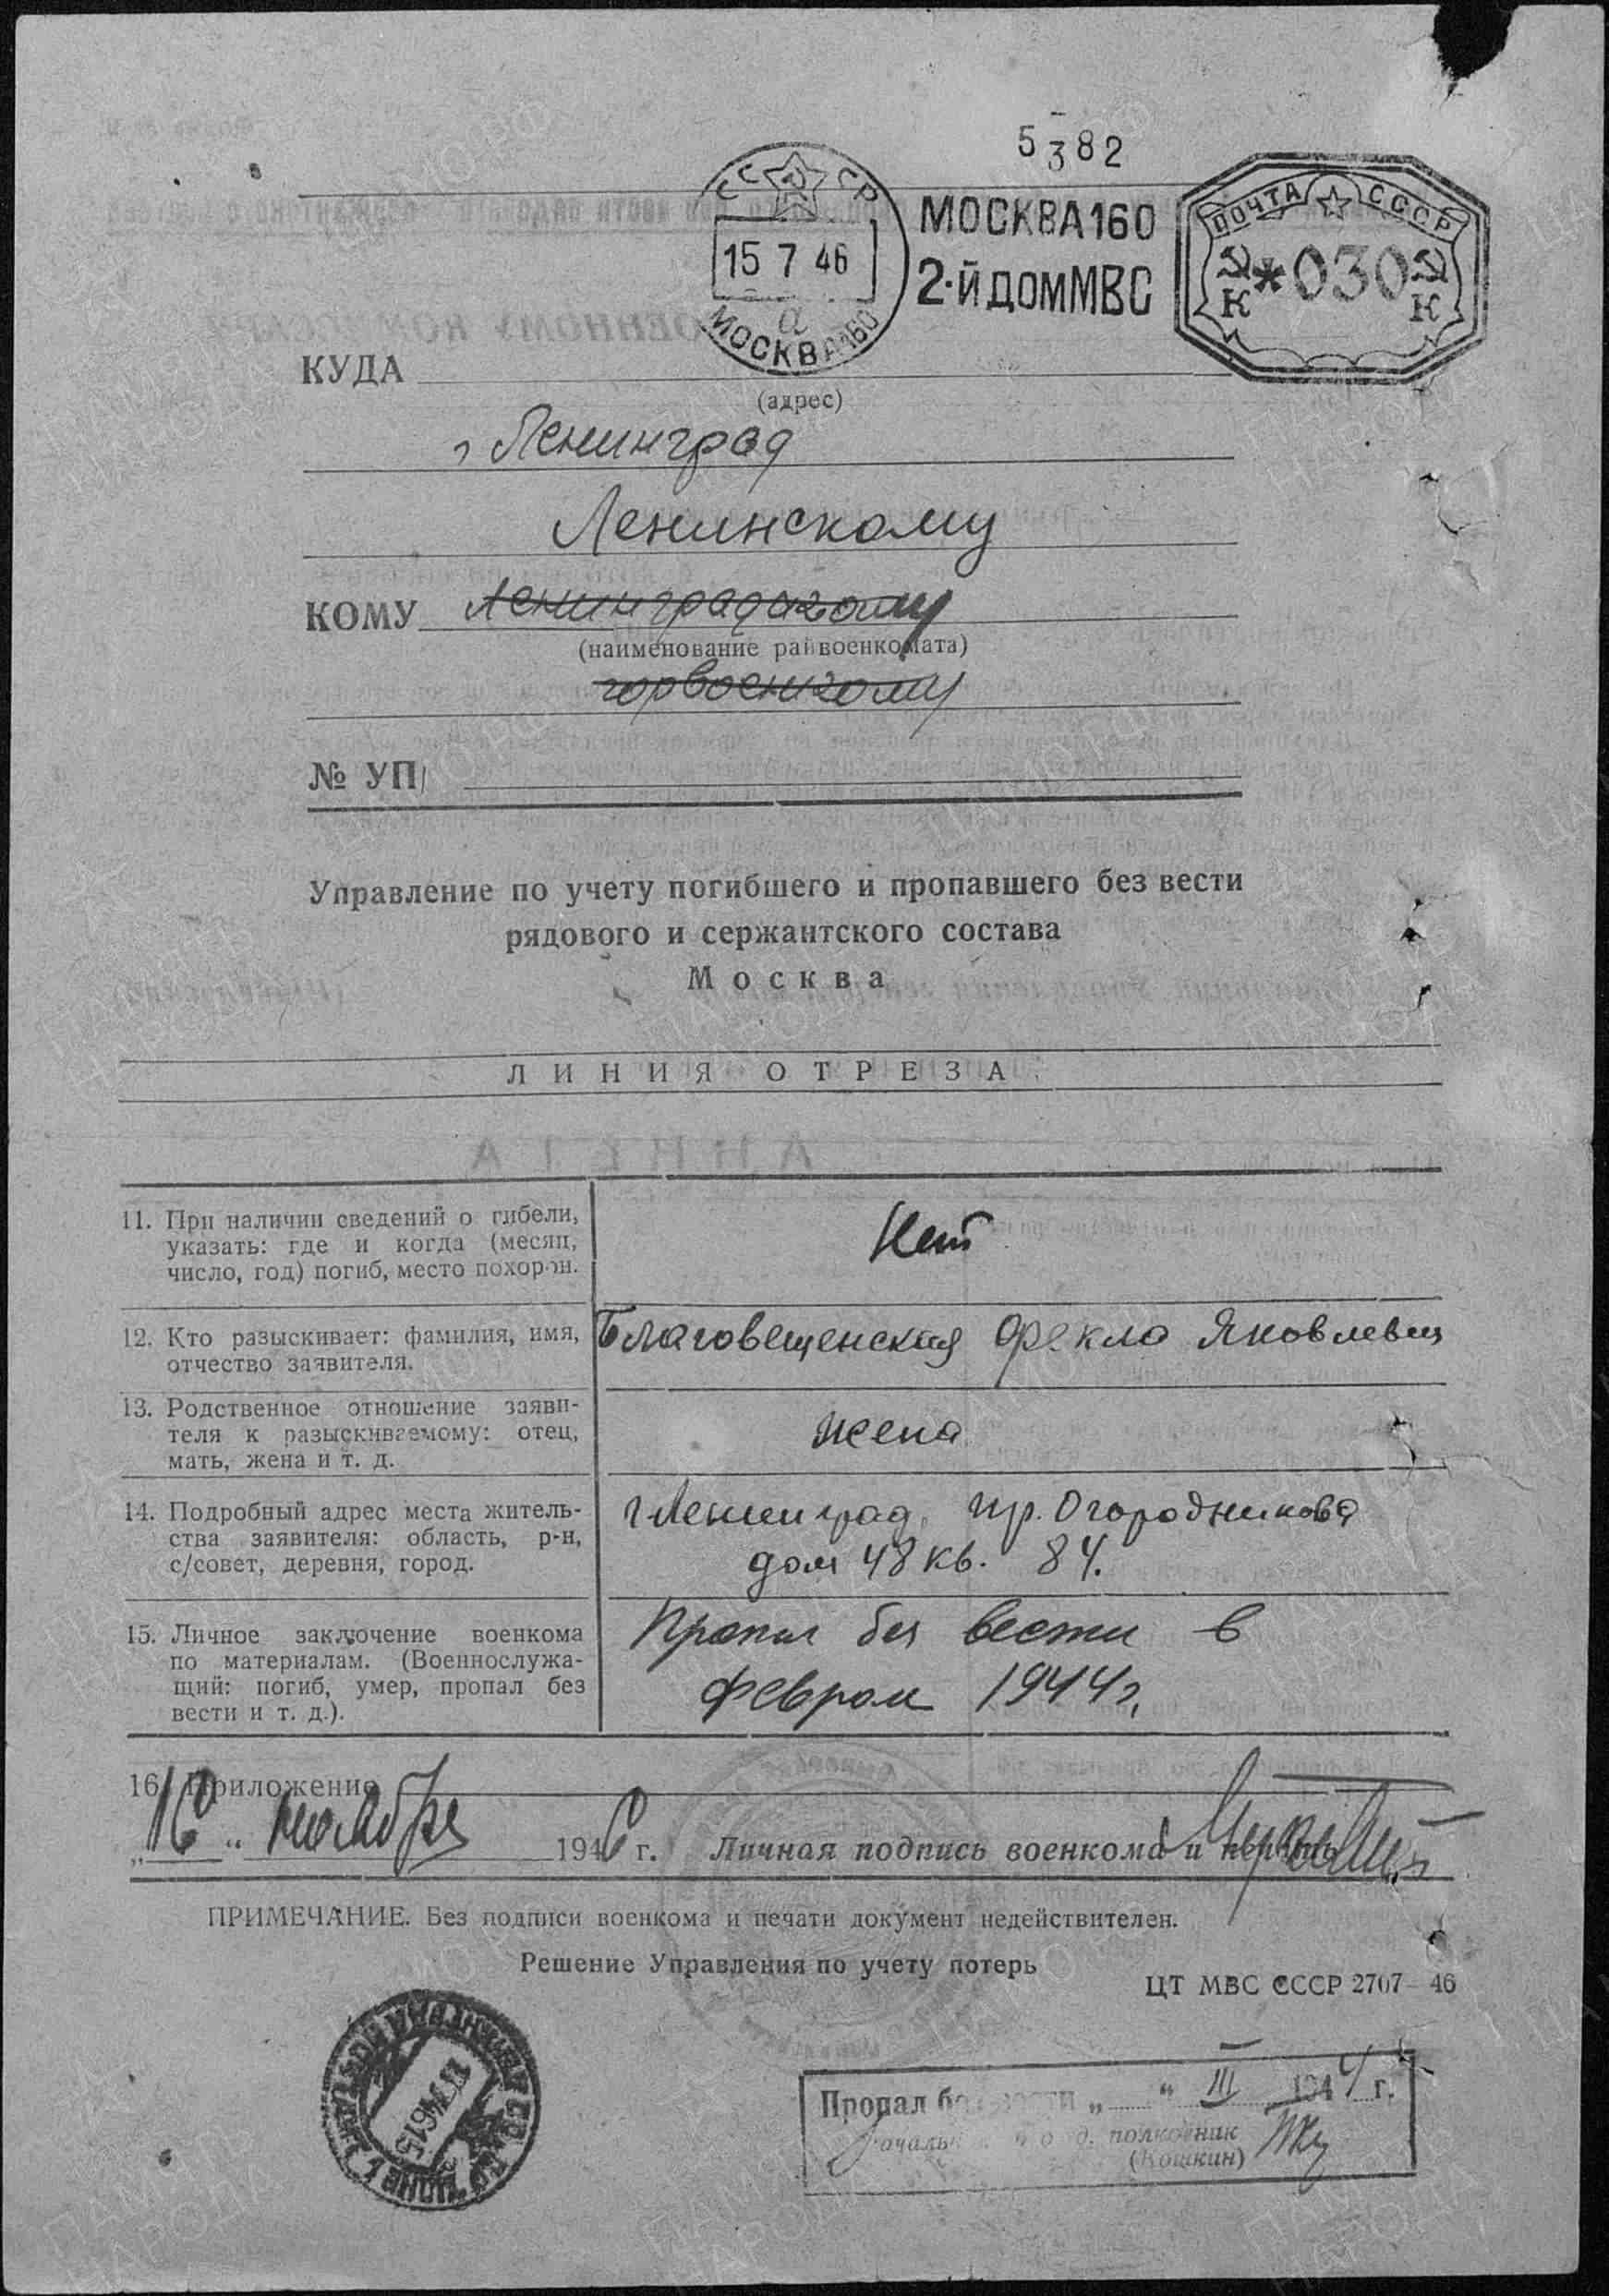 5382
СССР
15 7 46
а
МОСКВА 160
МОСКВА 160
2-Й ДОМ МВС
ПОЧТА СССР
К *030 К
КУДА
(адрес)
г Ленинград
Ленинскому
КОМУ Ленинградскому
(наименование райвоенкомата)
горвоенкому
№ УП/
Управление по учету погибшего и пропавшего без вести
рядового и сержантского состава
Москва
ЛИНИЯ ОТРЕЗА
11. При наличии сведений о гибели,
указать: где и когда (месяц,
число, год) погиб, место похорон.
Нет
12. Кто разыскивает: фамилия, имя,
отчество заявителя.
Благовещенская Фекла Яковлевн
13. Родственное отношение заяви-
теля к разыскиваемому: отец,
мать, жена и т. д.
жена
14. Подробный адрес места житель-
ства заявителя: область, р-н,
с/совет, деревня, город.
г Ленинград, пр. Огородникова
дом 48 кв. 84.
15. Личное заключение военкома
по материалам. (Военнослужа-
щий: погиб, умер, пропал без
вести и т. д.).
Пропал без вести в
феврале 1944 г.
16. Приложение
„16“ ноября 1946 г. Личная подпись военкома и печать
ПРИМЕЧАНИЕ. Без подписи военкома и печати документ недействителен.
Решение Управления по учету потерь
ЦТ МВС СССР 2707–46
Пропал без вести „ “ III 1944 г.
полковник
(Кошкин)